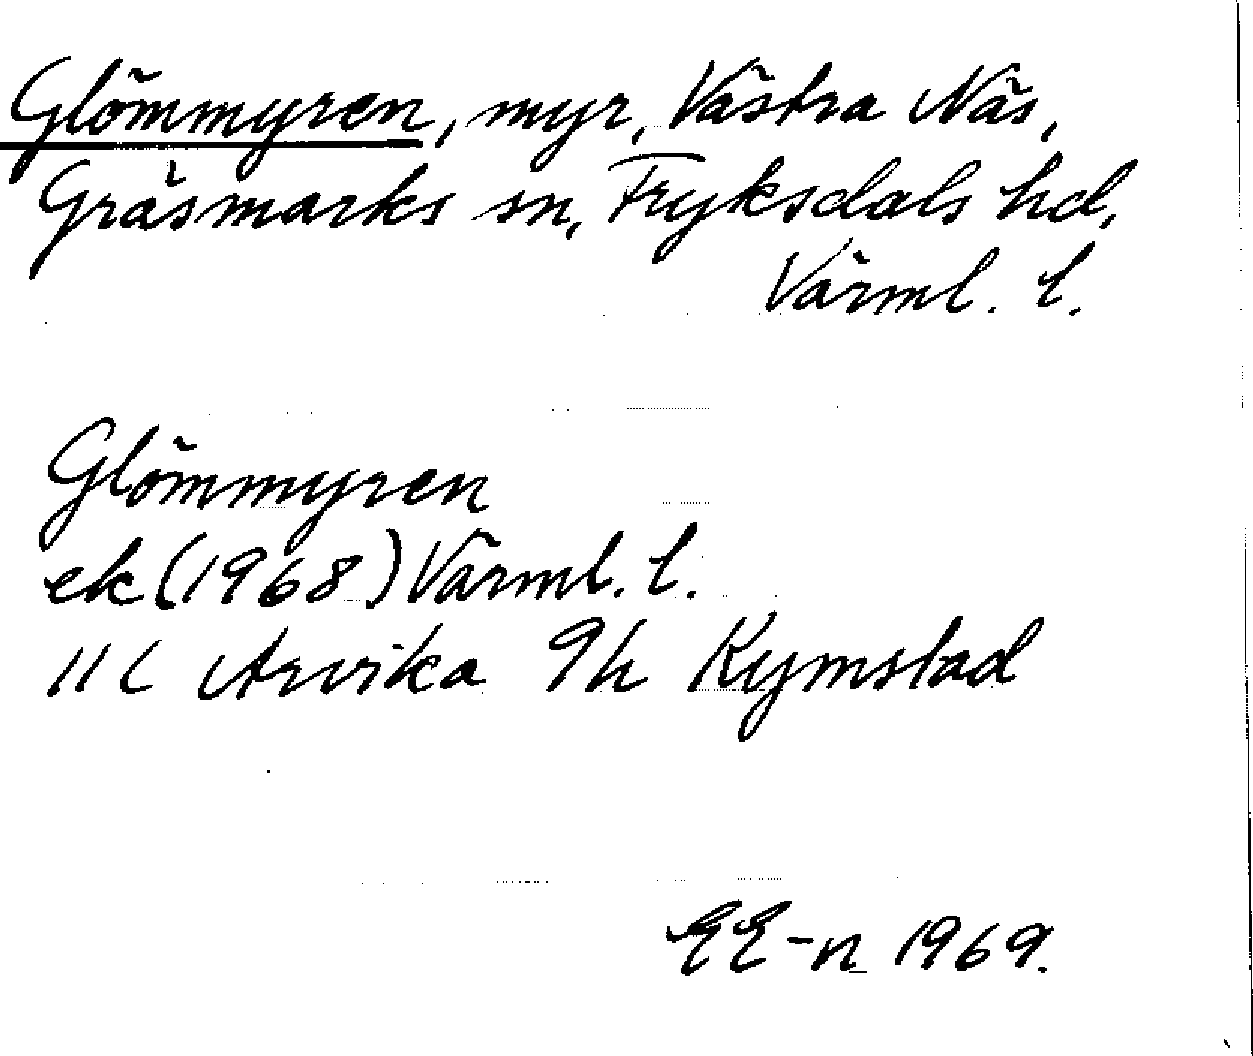 Glömmyren, myr, Västra Näs,
Gräsmarks sn, Fryksdals hd,
Värml. l.
Glömmyren
ek (1968) Värml. l.
11C Arvika 9h Kymstad
EE-n 1969.